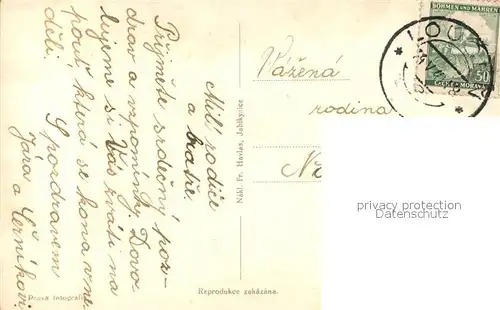 Milí rodiče
a bratře.
Přijměte srdečný poz-
drav a vzpomínky. Dovo
lujeme si Vás zváti na
pouť která se koná v ne
děli.
S pozdravem
Jára a Černíkovi
Pravá fotografie
Nákl. Fr. Havlas, Jablkynice
Reprodukce zakázána.
Vážená
rodina
BÖHMEN UND MÄHREN
50
ČECHY A MORAVA
privacy protection
Datenschutz